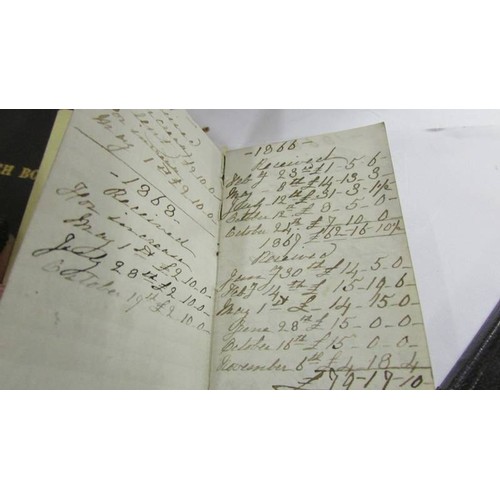 TH BO
May 1 £2.10.0
-1868-
Received
For increase
May 1st £2.10.0-
July 28th £2.10.0-
October 19th £2.10.0-
-1866-
Received
Feby 23rd £1-5-6-
May - 8th £14-13-3-
July - 12th £31-3-1½
October 12th £8-5-0-
October 24th £7-10-0-
1867 £62-16-10½
Received
Jany 30th £14-5-0-
Feby 14th £15-19-6-
May 1st £-14-15-0-
June 28th £15-0-0-
October 16th £15-0-0-
November 6th £4-18-4
£79-17-10-